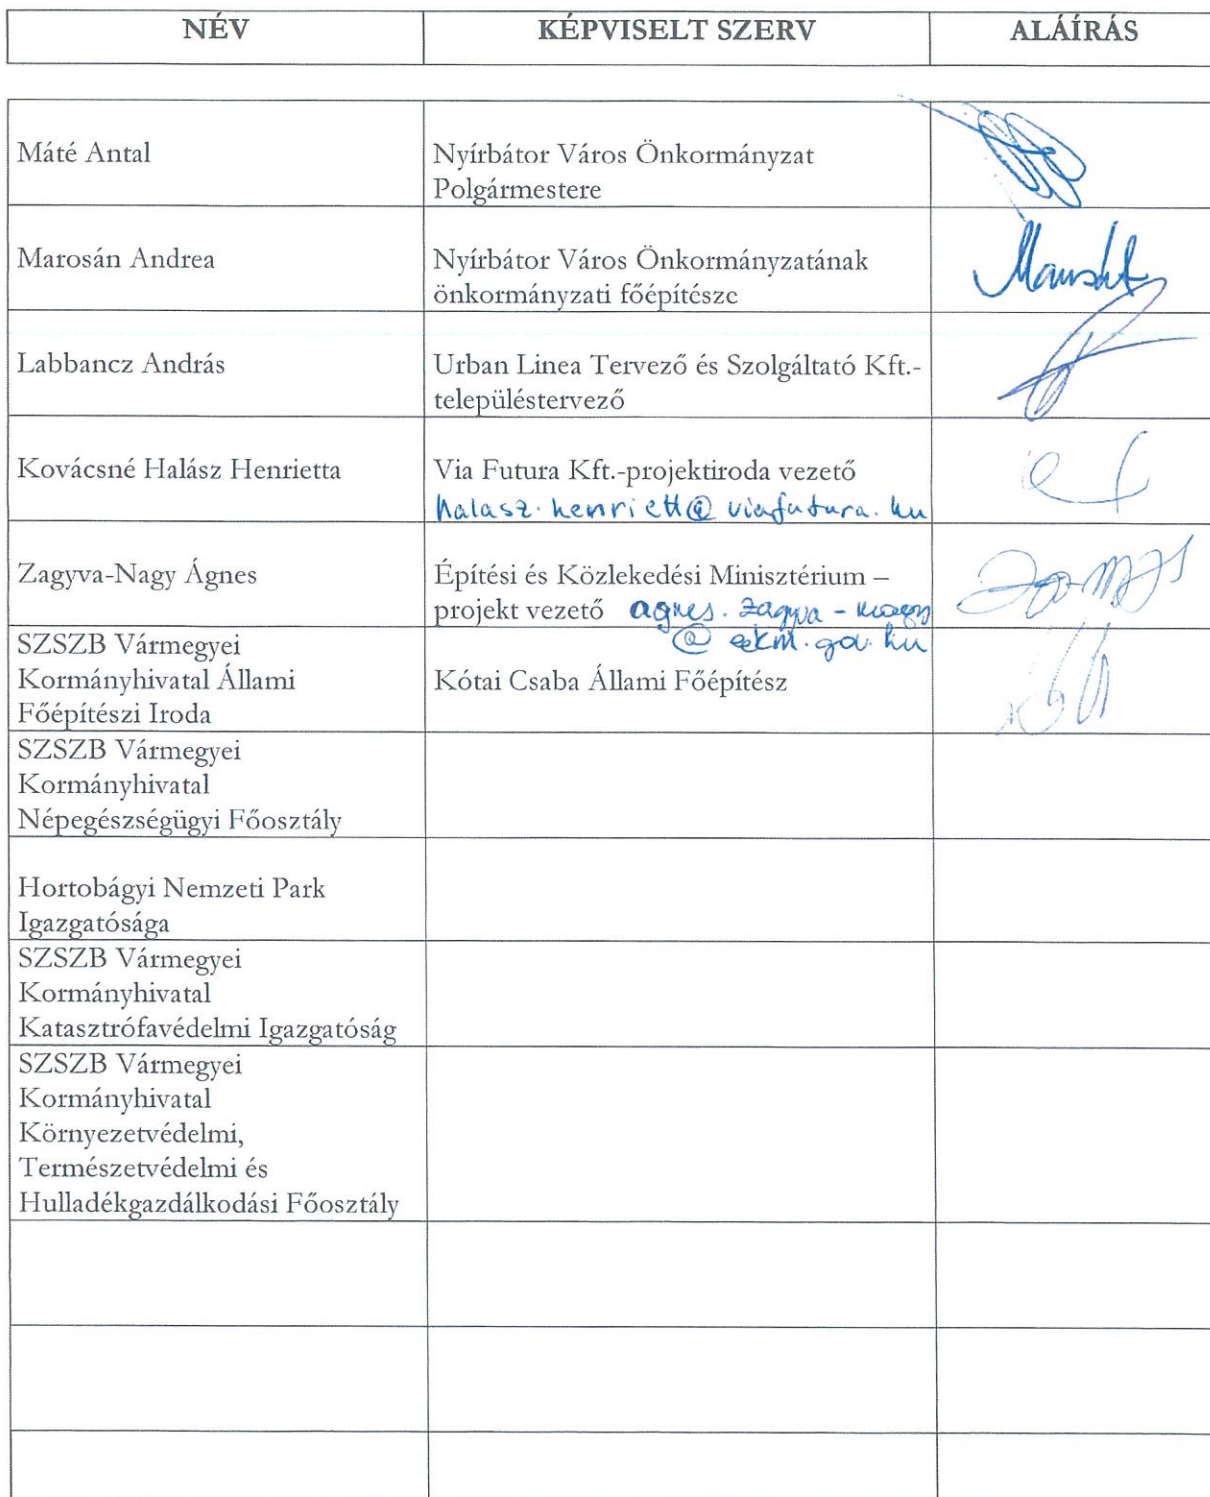 NÉV KÉPVISELT SZERV ALÁÍRÁS
Máté Antal
Nyírbátor Város Önkormányzat
Polgármestere
Marosán Andrea
Nyírbátor Város Önkormányzatának
önkormányzati főépítésze
Labbancz András
Urban Linea Tervező és Szolgáltató Kft.-
településtervező
Kovácsné Halász Henrietta
Via Futura Kft.-projektiroda vezető
halasz.henriett@viafutura.hu
Zagyva-Nagy Ágnes
Építési és Közlekedési Minisztérium –
projekt vezető agnes.zagyva-nagy
@ekm.gov.hu
SZSZB Vármegyei
Kormányhivatal Állami
Főépítészi Iroda
Kótai Csaba Állami Főépítész
SZSZB Vármegyei
Kormányhivatal
Népegészségügyi Főosztály
Hortobágyi Nemzeti Park
Igazgatósága
SZSZB Vármegyei
Kormányhivatal
Katasztrófavédelmi Igazgatóság
SZSZB Vármegyei
Kormányhivatal
Környezetvédelmi,
Természetvédelmi és
Hulladékgazdálkodási Főosztály